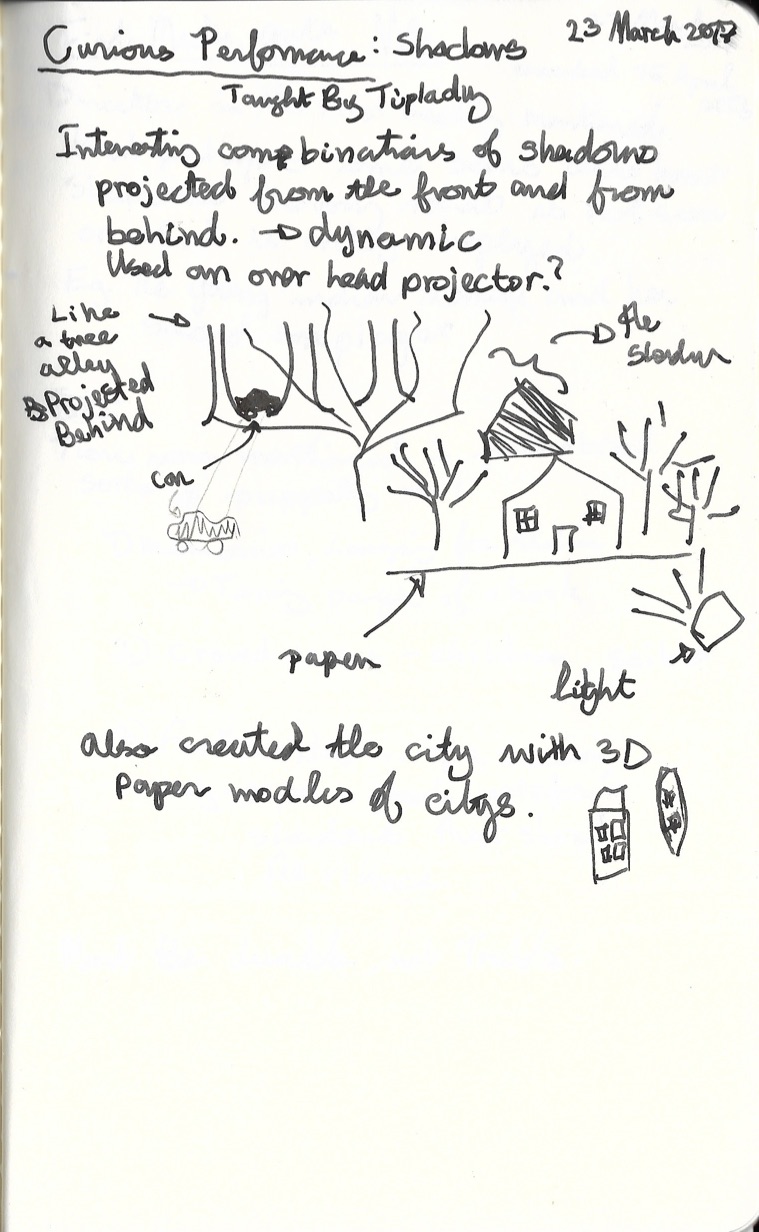 23 March 2017
Curious Performance: Shadows
Taught By Tiplady
Interesting combinations of shadows
projected from the front and from
behind. → dynamic
Used an over head projector.?
Like
a tree
alley
Projected
Behind
the
car
paper
light
also created the city with 3D
Paper modles of citys.